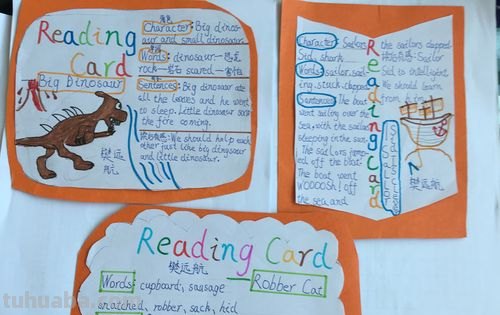 Reading
Card
Big Dinosaur
角色
Character: Big dinos-
aur and small dinosaur.
Words: dinosaur—恐龙
rock—岩石 scared—害怕
Sentences: Big dinosaur ate
all the leaves and he went
to sleep. Little dinosaur saw
the fire coming.
We should help each
other just like big dingsaur
and little dinosaur.
樊远
航
Reading Card
Character: Sailors
Sid, shark
Words: sailor, sail-
ing, stuck, clapped
Sentences: The boat
went sailing over the
sea, with the sailors
sleeping in the sun.
The sailors jump-
ed off the boat.
The boat went
WOOOSH! off
the sea, and
the sailors clapped.
Sailor
Sid to intelligent
We should learn
from him.
樊远
航
Reading Card
樊远航
Words: cupboard, sausage
Robber Cat
snatched, robber, sack, hid
tuhuaba.com